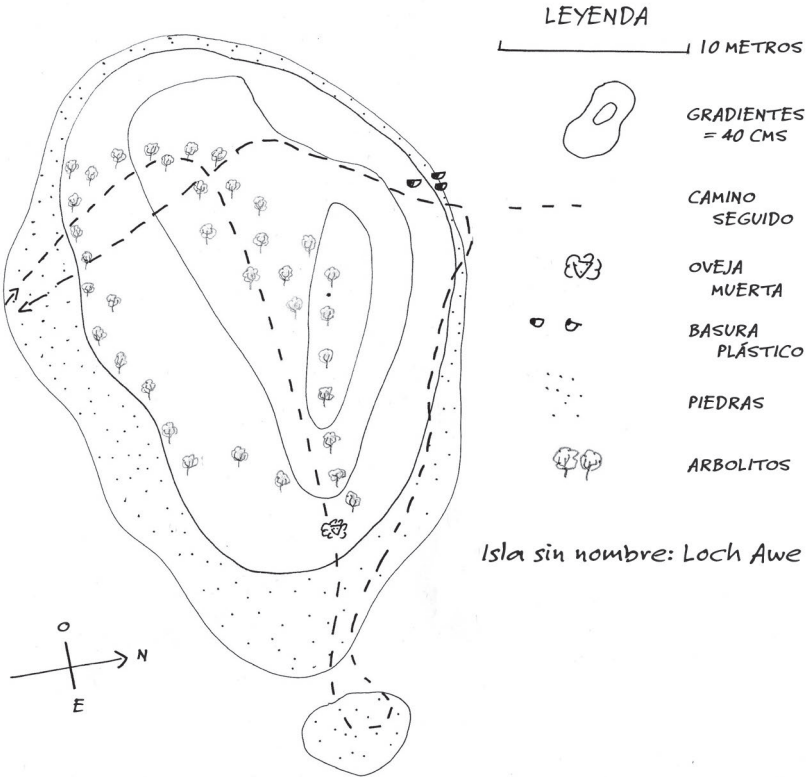 LEYENDA
10 METROS
GRADIENTES
= 40 CMS
CAMINO
SEGUIDO
OVEJA
MUERTA
BASURA
PLÁSTICO
PIEDRAS
ARBOLITOS
Isla sin nombre: Loch Awe
O
N
E